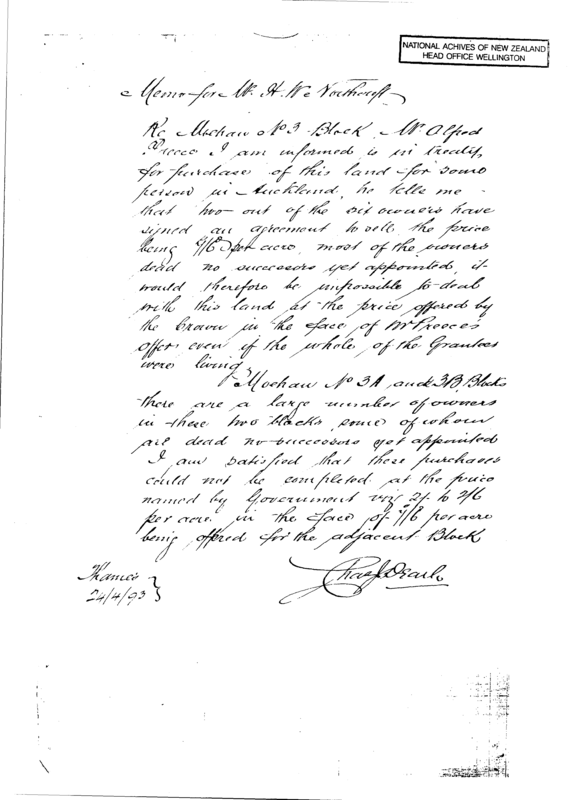 NATIONAL ACHIVES OF NEW ZEALAND
HEAD OFFICE WELLINGTON
Memo for Mr. H. W. Northcroft
Re Moehau No 3 Block Mr Alfred
Preece I am informed is in treaty
for purchase of this land for some
person in Auckland, he tells me
that two out of the six owners have
signed an agreement to sell the price
being per acre, most of the owners
dead no successors yet appointed, it
would therefore be impossible to deal
with this land at the price offered by
the Crown in the face of Mr Preece's
offer, even if the whole of the Grantees
were living
Moehau No 3A and 3B Blocks
there are a large number of owners
in these two blocks some of whom
are dead no successors yet appointed
I am satisfied that these purchases
could not be completed at the price
named by Government viz 2/- to 2/6
per acre in the face of 7/6 per acre
being offered for the adjacent Block
Thames
24/4/93